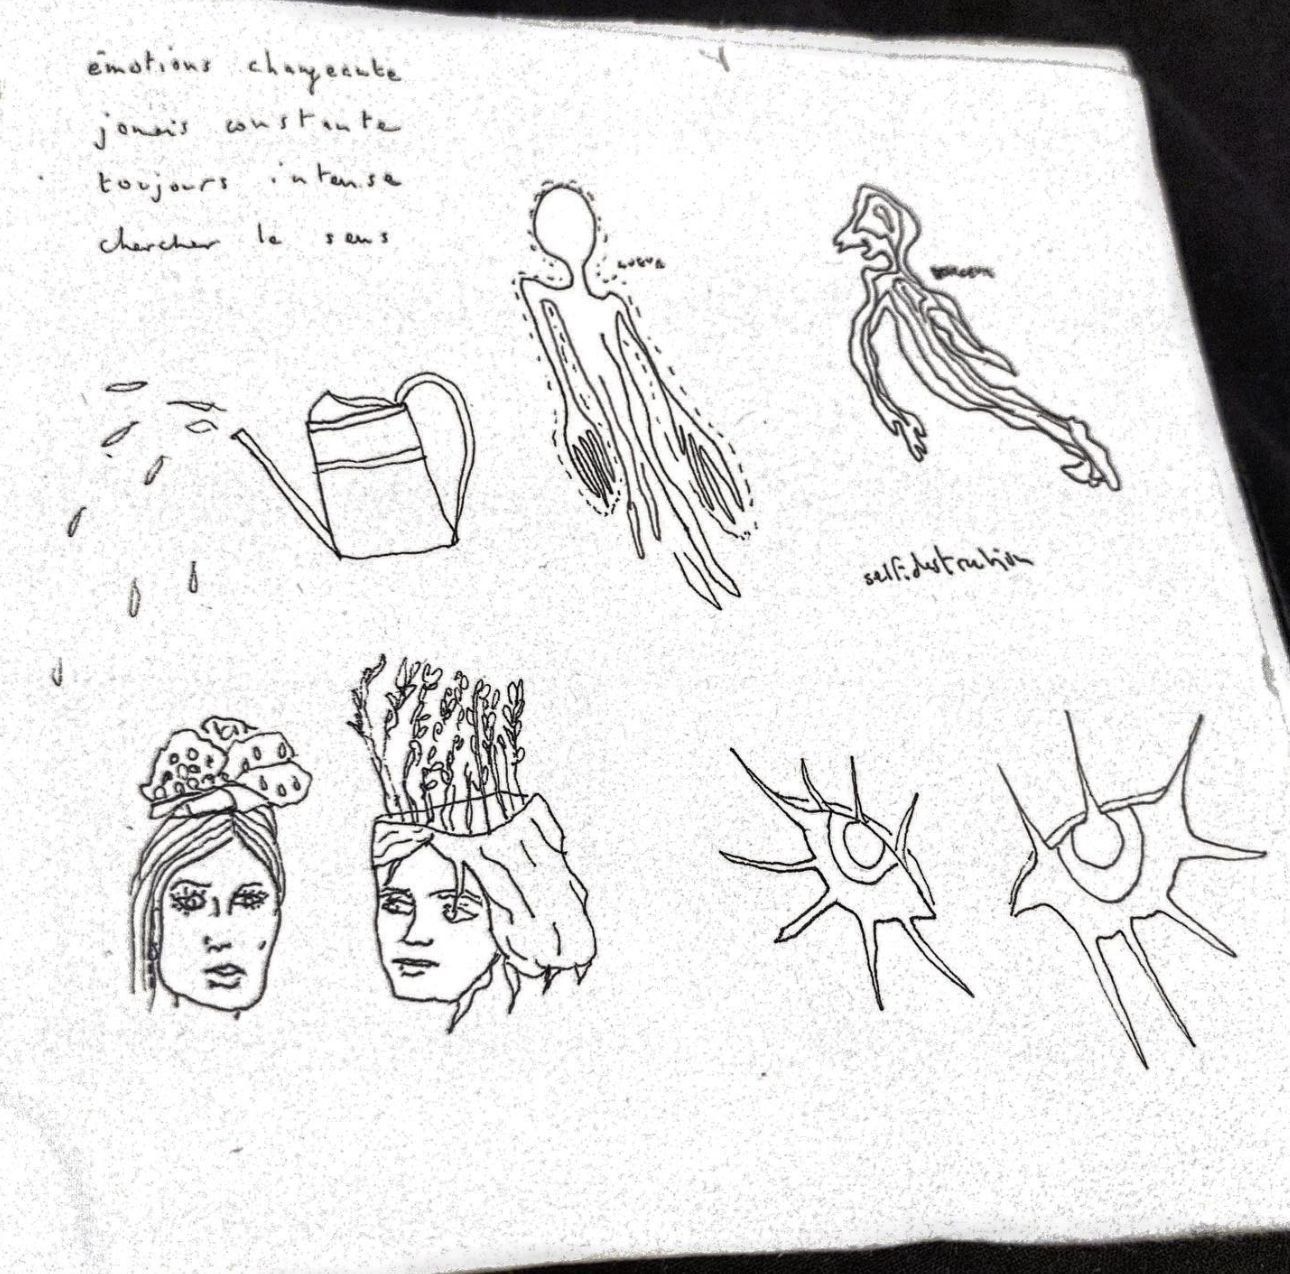 émotions changeante
jamais constante
toujours intense
chercher le sens
lueur
self-destruction